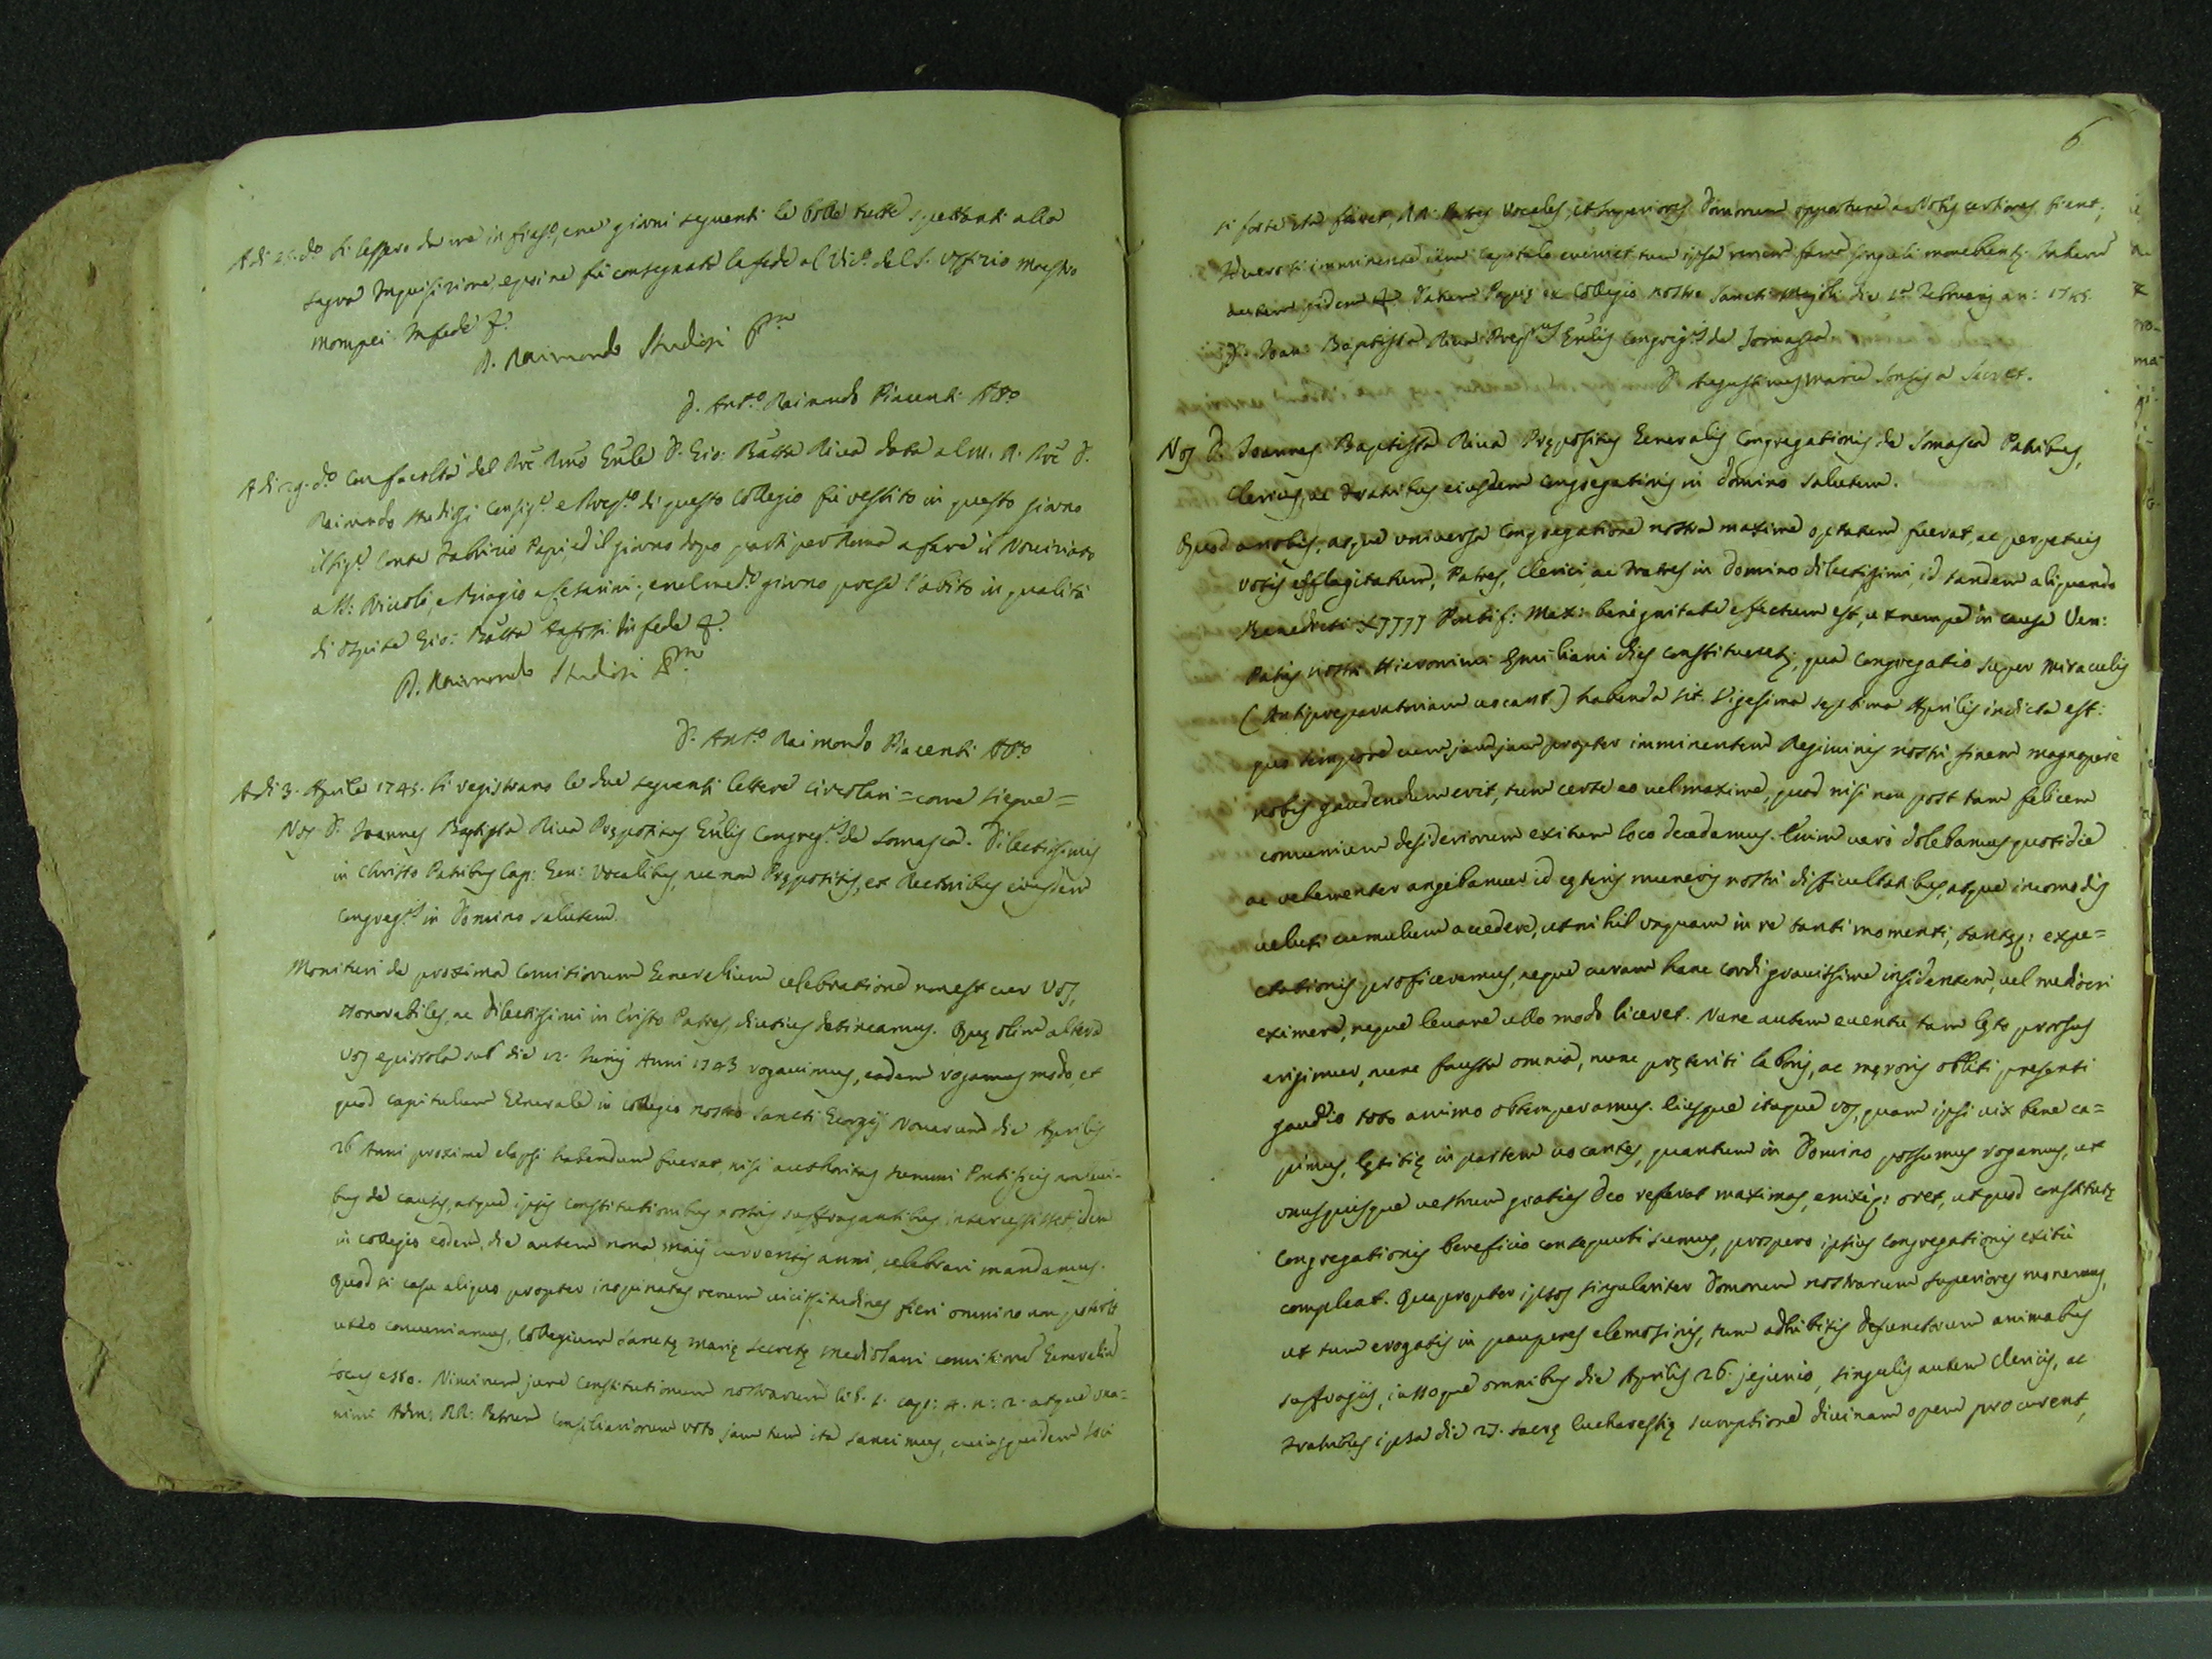 Adi 25. do si lessero da me in fresco, e ne' giorni seguenti le bolle tutte spettanti alla
sagra Inquisizione, e poi ne fu consegnata la fede al Vic.o del S. Offizio Maestro
Mompei. In fede &.
D. Raimondo Studiosi
D. Ant.o Raimondo Piacenti Att.o
Adi 29. do con facoltà del Rmo Gnle D. Gio: Batta Riva data al M. R. D.
Raimondo Studiosi Consig.e e Prep.o di questo Collegio fu vestito in questo giorno
il Sig.r Conte Fabrizio Papi, ed il giorno dopo partì per Roma a fare il Noviziato
a SS: Nicolò, e Biagio a Cesarini; e nel med.o giorno prese l'abito in qualità
di Ospite Gio: Batta In fede &.
D. Raimondo Studiosi
D. Ant.o Raimondo Piacenti Att.o
Adi 3. Aprile 1745. si registrano le due seguenti lettere circolari = come siegue =
Nos D. Joannes Baptista Riva Prępositus Gnlis Congreg.is de Somasca. Dilectissimis
in Christo Patribus Cap: Gen: Vocalibus, nec non Prępositis, et Rectoribus eiusdem
Congreg.is in Domino salutem.
Monituri de proxima Comitiorum Generalium celebratione non est cur vos,
Honorabiles, ac Dilectissimi in Cristo Patres, diutius detineamus. Quę olim altera
vos epistola sub die 12. Junij Anni 1743 rogavimus, eadem rogamus modo, et
quod capitulum Generale in Collegio nostro Sancti Georgij Novarum die Aprilis
26 Anni proxime elapsi habendum fuerat, nisi authoritas summi Pontificis
bus de causis, atque ipsis constitutionibus nostris suffragantibus intercessisset, idem
in Collegio eodem, die autem nona Maij currentis anni, celebrari mandamus.
Quod si casu aliquo propter inopinatas rerum vicissitudines fieri omnino non poterit
ut eo conveniamus, Collegium Sanctę Marię Secretę Mediolani comitiorum Generalium
locus esto. Nimirum jure Constitutionum nostrarum lib. 1. cap: 4. n: 2. atque una=
nimi Adm: RR: Patrum Consiliariorum voto jam tum ita sancimus, cuius quidem loci
6
si forte ita fuerit, RR. Patres Vocales, et Superiores Domorum opportune a Nobis certiores fient;
monebuntur. Datum
Papię ex Collegio nostro Sancti Majoli die 1.a Februarij an: 1745.
D. Joan: Baptista Riva Prep.tus Gnlis Congreg.is de Somasca
D. Augustinus Maria Secret.
Nos D. Joannes Baptista Riva Prępositus Generalis Congregationis de Somasca Patribus,
Clericis, ac Fratribus eiusdem Congregationis in Domino salutem.
Quod a nobis, atque universa Congregatione nostra maxime optatum fuerat, ac perpetuis
votis efflagitatum, Patres, Clerici ac Fratres in Domino dilectissimi, id tandem aliquando
Benedicti XIIII Pontif: Max: benignitate effectum est, ut nempe in causa Ven:
Patris nostri Hieronimi Emiliani dies constitueretur, qua Congregatio super miraculis
(Antipreparatoriam vocant) habenda sit. Vigesima septima Aprilis indicta est:
quo tempore cum jam jam propter imminentem Regiminis nostri finem magnopere
nobis gaudendum erit, tum certe eo vel maxime, quod nisi non post tam felicem
comunium desideriorum exitum loco decedamus. Enim vero dolebamus quotidie
ac vehementer angebamur id cęteris muneris nostri difficultatibus, atque incomodis
veluti cumulum accedere, ut nihil unquam in re tanti momenti, tantęq; expe=
ctationis proficeremus, neque curam hanc cordi gravissime insidentem, vel mediocri
eximere, neque levare ullo modo liceret. Nunc autem eventu tam lęto prorsus
erigimur, nunc fausta omnia, nunc pręteriti laboris, ac męroris obliti presenti
gaudio toto animo obtemperamus. Eiusque itaque vos, quam ipsi vix bene ca=
pimus, lętitię in partem vocantes, quantum in Domino possumus rogamus, ut
unusquisque vestrum gratias Deo referat maximas, enixeq; oret, ut quod constitutę
Congregationis beneficio consequuti sumus, prospero ipsius Congregationis exitu
compleat. Quapropter ipsos singulariter Domorum nostrarum Superiores monemus,
ut tum erogatis in pauperes elemosinis, tum adhibitis defunctorum animabus
suffragijs, iussoque omnibus die Aprilis 26. jejunio, singulis autem Clericis, ac
Fratribus ipsa die 27. sacrę Eucharestię sumptione divinam opem procurent,